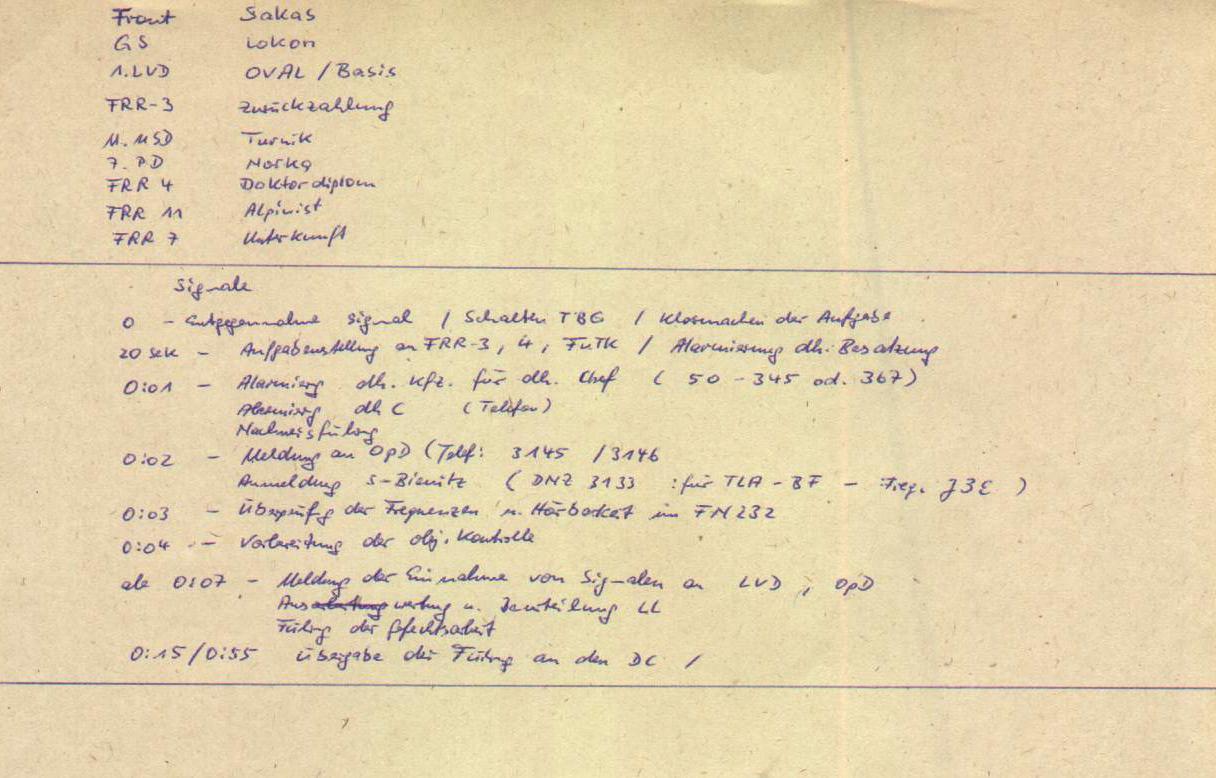 Front Sakas
GS Lokon
1. LVD OVAL / Basis
FRR-3 Zurückzahlung
11. MSD Turnik
7. PD Norka
FRR 4 Doktordiplom
FRR 11 Alpinist
FRR 7 Unterkunft
Signale
0 - Entgegennahme Signal / Schalten TBG / Klarmachen der Aufgabe
20 sek - Aufgabenstellung an FRR-3, 4, FuTK / Alarmierung dh. Besatzung
0:01 - Alarmierg dh. Kfz. für dh. Chef ( 50 - 345 od. 367)
Alarmierg dh C (Telefon)
Nachweisführg
0:02 - Meldung an OpD (Telef: 3145 / 3146
Anmeldung S-Bienitz ( DNZ 3133 : für TLA - BF - Freq. J3E )
0:03 - Überprüfg der Frequenzen u. Hörbarkeit im FN 232
0:04 - Vorbereitung der obj. Kontrolle
ab 0:07 - Meldung der Einnahme von Signalen an LVD, OpD
Auswertung u. Beurteilung LL
Führg der Gefechtsarbeit
0:15/0:55 Übergabe der Führg an den DC /